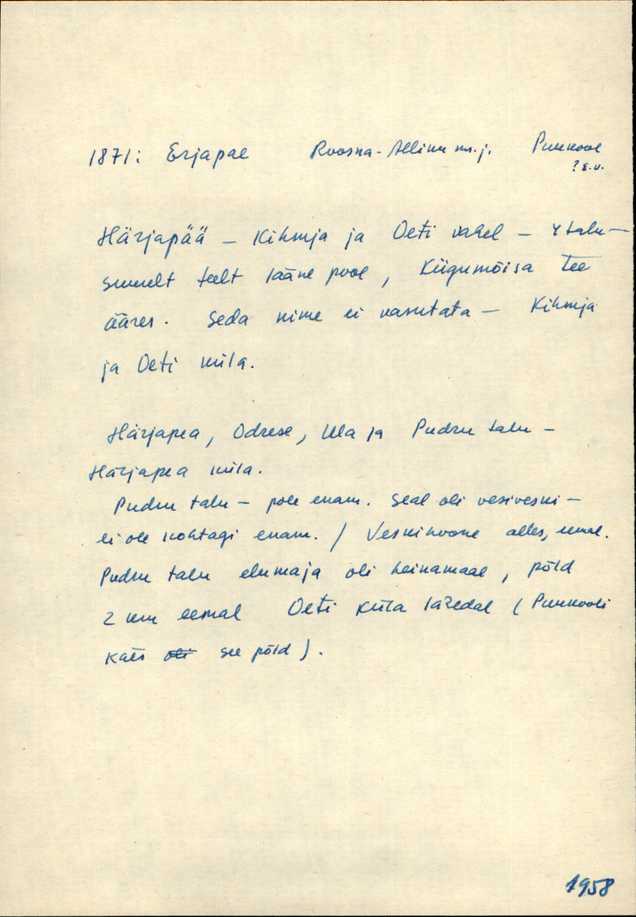 1871: Erjapae Roosna-Alliku m.j. Punkool
? E.V.
Härjapää – Kihmja ja Oeti vahel – 4 talu –
suurelt teelt lääne pool, Kiigumõisa tee
ääres. Seda nime ei kasutata – Kihmja
ja Oeti küla.
Härjapea, Odrese, Ula ja Pudru talu –
Härjapea küla.
Pudru talu – pole enam. Seal oli vesiveski –
ei ole kohtagi enam. / Veskihoone alles,
Pudru talu elumaja oli heinamaal, põld
2 km eemal Oeti küla lähedal (Punkooli
käes oli see põld).
1958